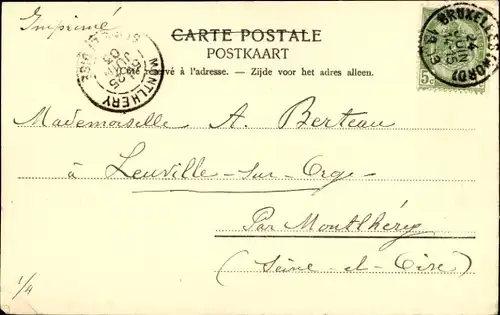 Imprimé
CARTE POSTALE
POSTKAART
Côté réservé à l'adresse. – Zijde voor het adres alleen.
BRUXELLES (NORD)
24
JUIN
1903
5c
MONTLHÉRY
25
JUIN
03
Mademoiselle A. Berteau
à Leuville-sur-Orge
Par Montlhéry
(Seine-et-Oise)
1/4